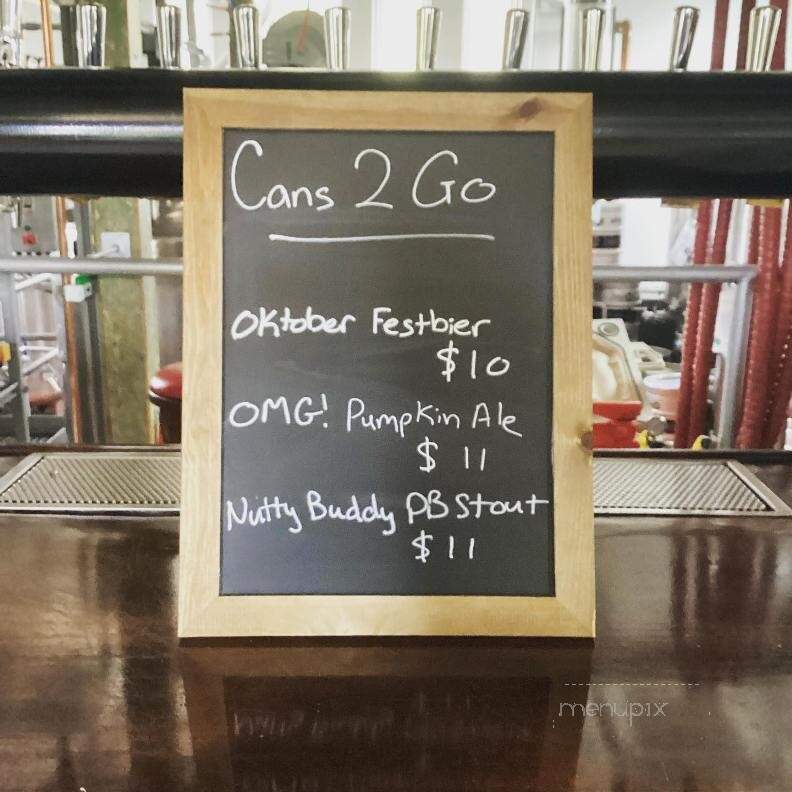 Cans 2 Go
Oktober Festbier
$10
OMG! Pumpkin Ale
$11
Nutty Buddy PB Stout
$11
menupix